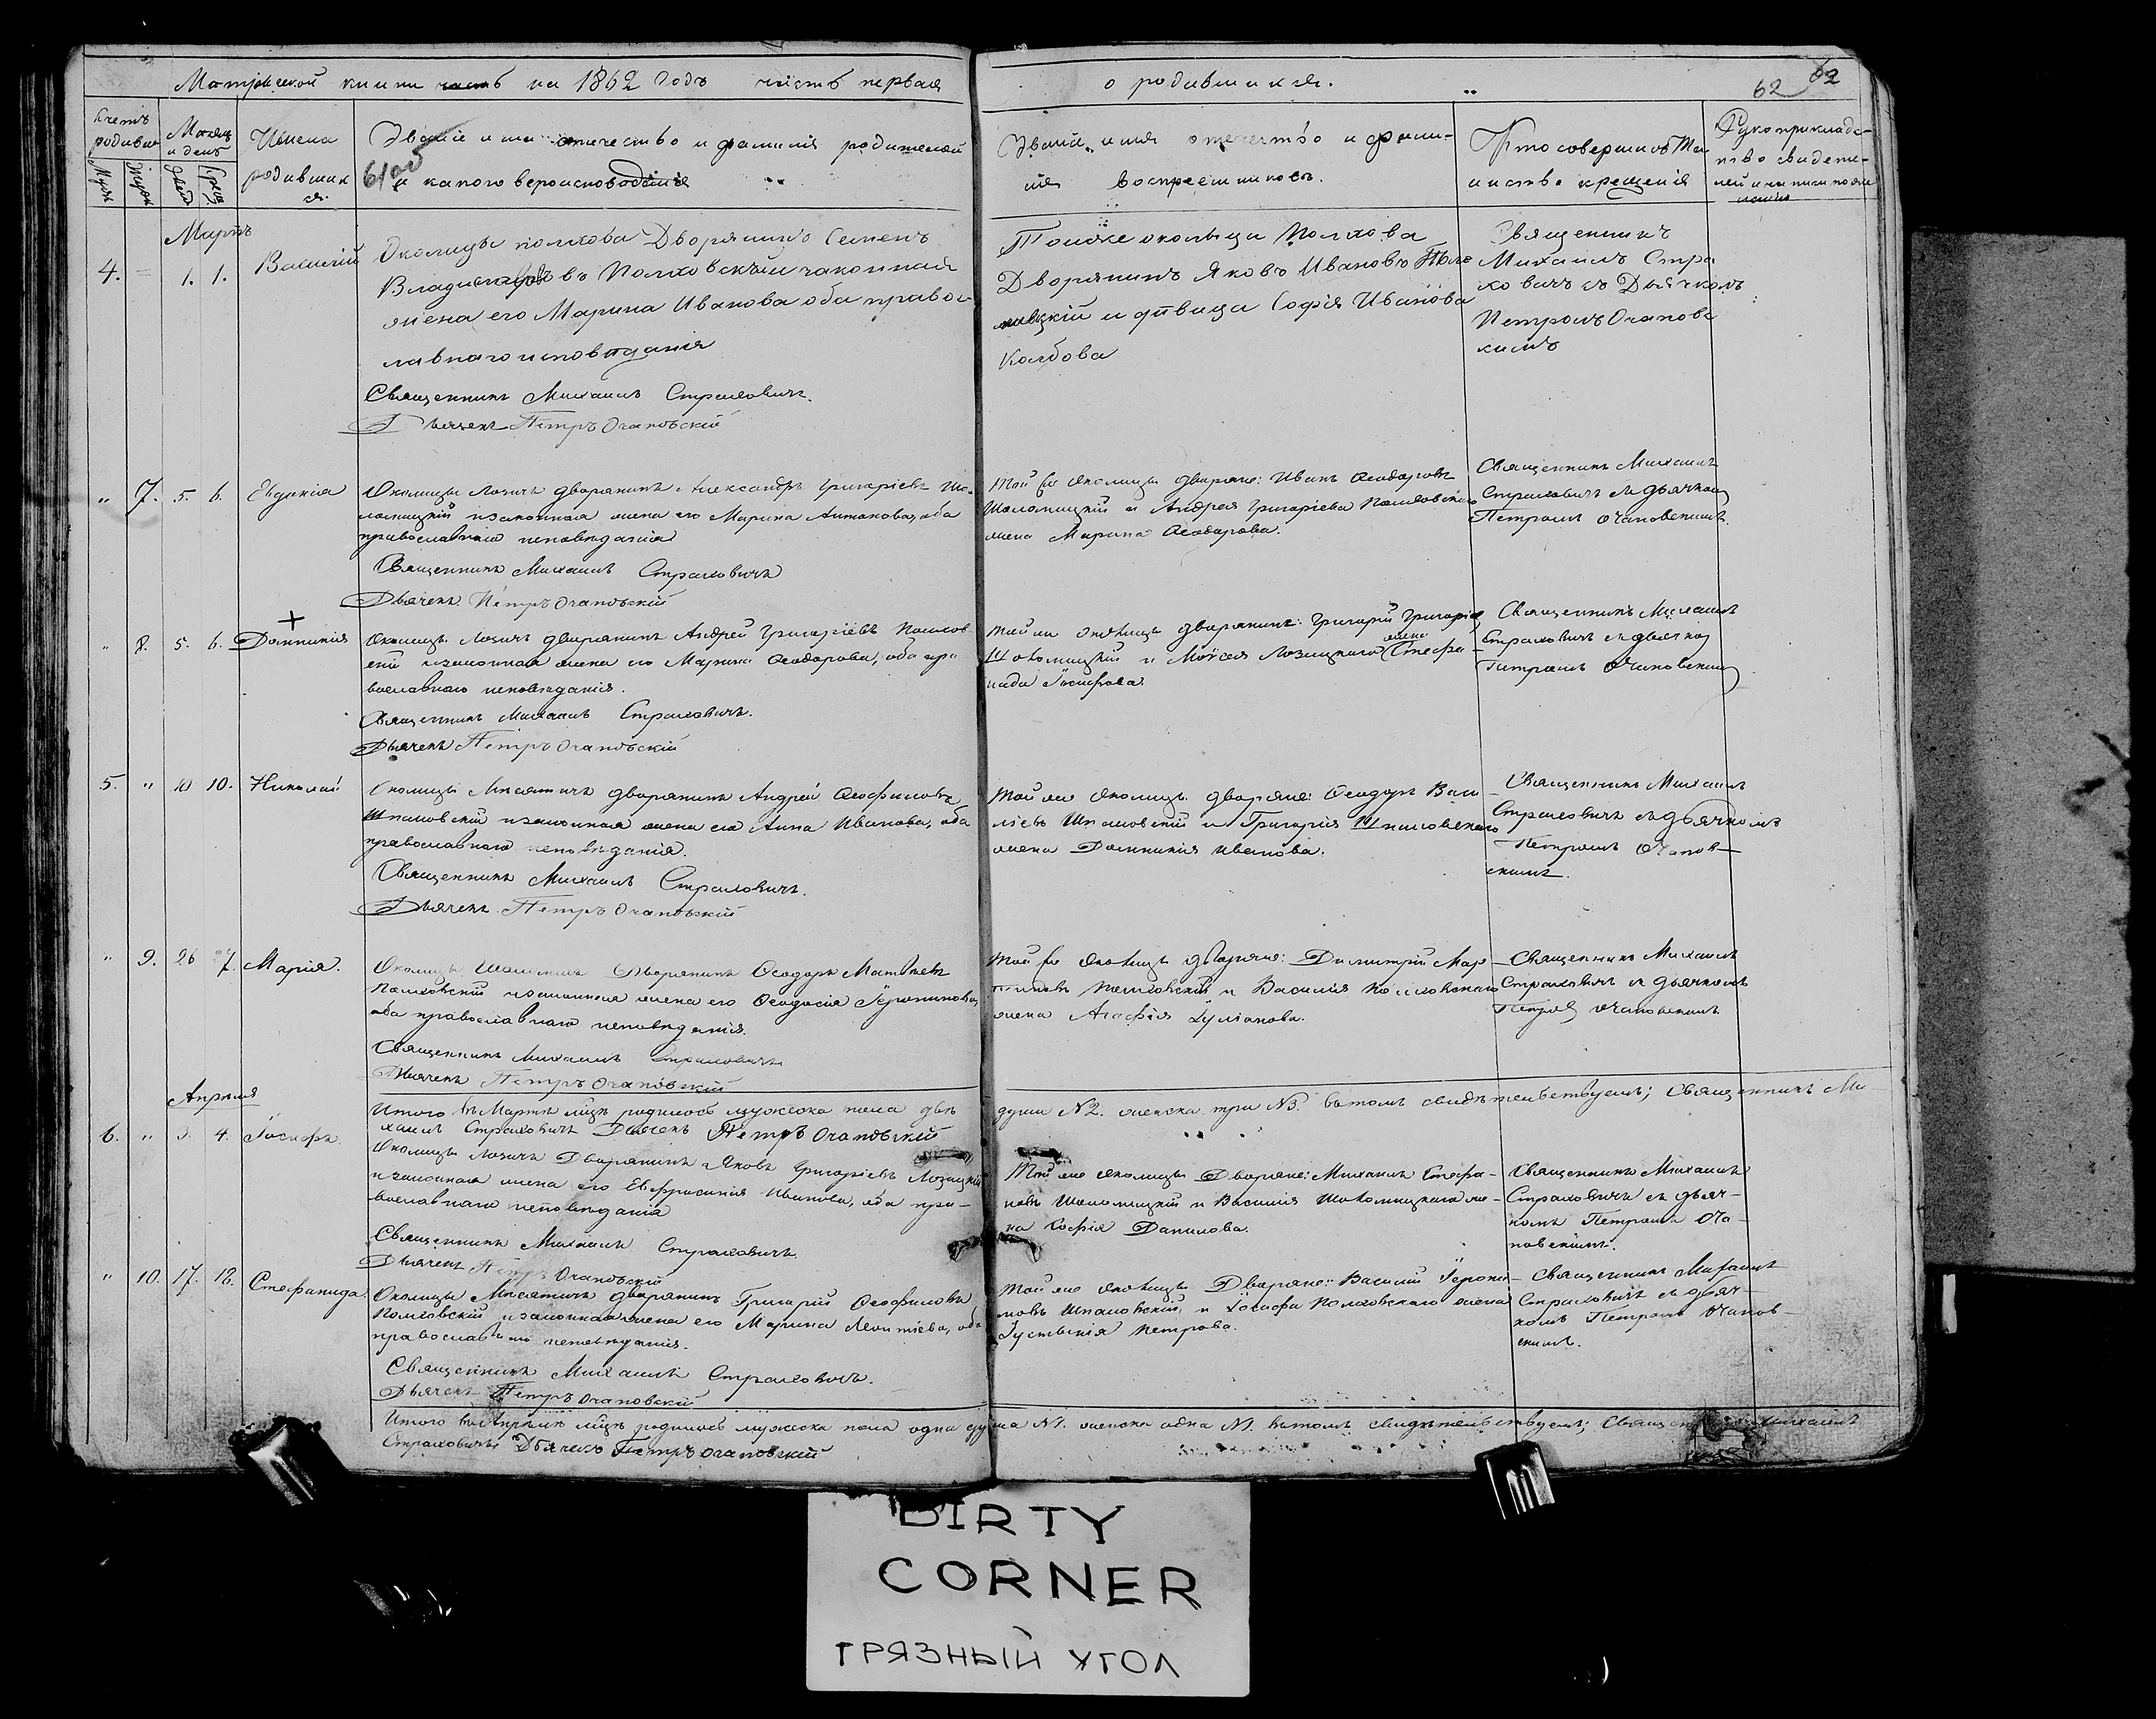 Метрической книги часть на 1862 годъ часть первая о родившихся.
62 62
Счетъ родивш
Мужск Женск
Месяцъ и день
рожд крещ
Имена родившихся.
Званіе имя отечество и фамилія родителей
и какого вероисповеданія
6100
Званіе, имя отечество и фами-
лія воспреемниковъ.
Кто совершилъ Та-
инство крещенія
Рукоприкладс-
тво свидете-
лей
Мартъ
4. = 1. 1. Василій
Околицы Полхова Дворянинъ Семенъ
Владиславовъ Полховскій и законная
жена его Марина Иванова оба правос-
лавнаго исповѣданія
Священникъ Михаилъ Страховичъ.
Дьячекъ Петръ Очаповскій
Тойже околицы Полхова
Дворянинъ Яковъ Ивановъ
и дѣвица Софія Иванова
Колбова
Священникъ
Михаилъ Стра
ховичъ съ Дьячкомъ
Петромъ Очаповс
кимъ
„ 7. 5. 6. Евдокія
Околицы Лозичъ дворянинъ Александръ Григоріевъ Шо-
ломицкій и законная жена его Марина Антонова, оба
православнаго исповѣданія
Священникъ Михаилъ Страховичъ
Дьячекъ Петръ Очаповскій
Той же околицы дворяне: Иванъ Ѳеодоровъ
Шоломицкій и Андрея Григоріева Полховскаго
жена Марина Ѳеодорова.
Священникъ Михаилъ
Страховичъ съ дьячкомъ
Петромъ Очаповскимъ.
+
„ 8. 5. 6. Домникія
Околицы Лозичъ дворянинъ Андрей Григоріевъ Полхов
скій и законная жена его Марина Ѳеодорова, оба пра
вославнаго исповѣданія.
Священникъ Михаилъ Страховичъ.
Дьячекъ Петръ Очаповскій
Той же околицы дворянинъ: Григорій Григоріев
Шоломицкій и Моисея Лозицкаго жена Стефа-
нида Іосифова.
Священникъ Михаилъ
Страховичъ съ дьячком
Петромъ Очаповским
5. „ 10 10. Николай
Околицы Мнсятичъ дворянинъ Андрей Ѳеофиловъ
Шпаковскій и законная жена его Анна Иванова, оба
православнаго исповѣданія.
Священникъ Михаилъ Страховичъ.
Дьячекъ Петръ Очаповскій
Той же околицы дворяне: Ѳеодоръ Васи-
ліевъ Шпаковскій и Григорія Шпаковскаго
жена Домникія Иванова.
Священникъ Михаилъ
Страховичъ съ дьячкомъ
Петромъ Очапов-
скимъ.
„ 9. 26 27. Марія.
Околицы Дворянинъ Ѳеодоръ Матвѣевъ
Полховскій и законная жена его Ѳеодосія Іеронимова,
оба православнаго исповѣданія.
Священникъ Михаилъ Страховичъ
Дьячекъ Петръ Очаповскій
Той же околицы дворяне: Димитрій Мар-
тиновъ Полховскій и Василія Полховскаго
жена Агафія Іуліанова.
Священникъ Михаилъ
Страховичъ съ дьячкомъ
Петромъ Очаповскимъ
Итого въ Мартѣ мѣцѣ родилось мужеска пола двѣ души №2. женска три №3. въ томъ свидѣтельствуемъ; Священникъ Ми
хаилъ Страховичъ Дьячекъ Петръ Очаповскій
Апрѣля
6. „ 3. 4. Іосифъ.
Околицы Лозичъ Дворянинъ Яковъ Григоріевъ Лозицкій
и законная жена его Евфросинія Иванова, оба пра-
вославнаго исповѣданія
Священникъ Михаилъ Страховичъ.
Дьячекъ Петръ Очаповскій
Той же околицы Дворяне: Михаилъ Стефа-
новъ Шоломицкій и Василія Шоломицкаго же-
на Софія Данилова.
Священникъ Михаилъ
Страховичъ съ дьяч-
комъ Петромъ Оча-
повскимъ.
„ 10. 17. 18. Стефанида.
Околицы Мнсятичъ дворянинъ Григорій Ѳеофиловъ
Полховскій и законная жена его Марина Леонтіева, оба
православнаго исповѣданія.
Священникъ Михаилъ Страховичъ.
Дьячекъ Петръ Очаповскій
Той же околицы Дворяне: Василій Іерони-
мовъ Шпаковскій, и Іосифа Полховскаго жена
Іустинія Петрова.
Священникъ Михаилъ
Страховичъ съ дьяч-
комъ Петромъ Очапов-
скимъ.
Итого въ Апрѣлѣ мѣцѣ родилось мужеска пола одна душа №1. женска одна №1. въ томъ свидѣтельствуемъ; Священникъ Михаилъ
Страховичъ Дьячекъ Петръ Очаповскій
DIRTY
CORNER
ГРЯЗНЫЙ УГОЛ